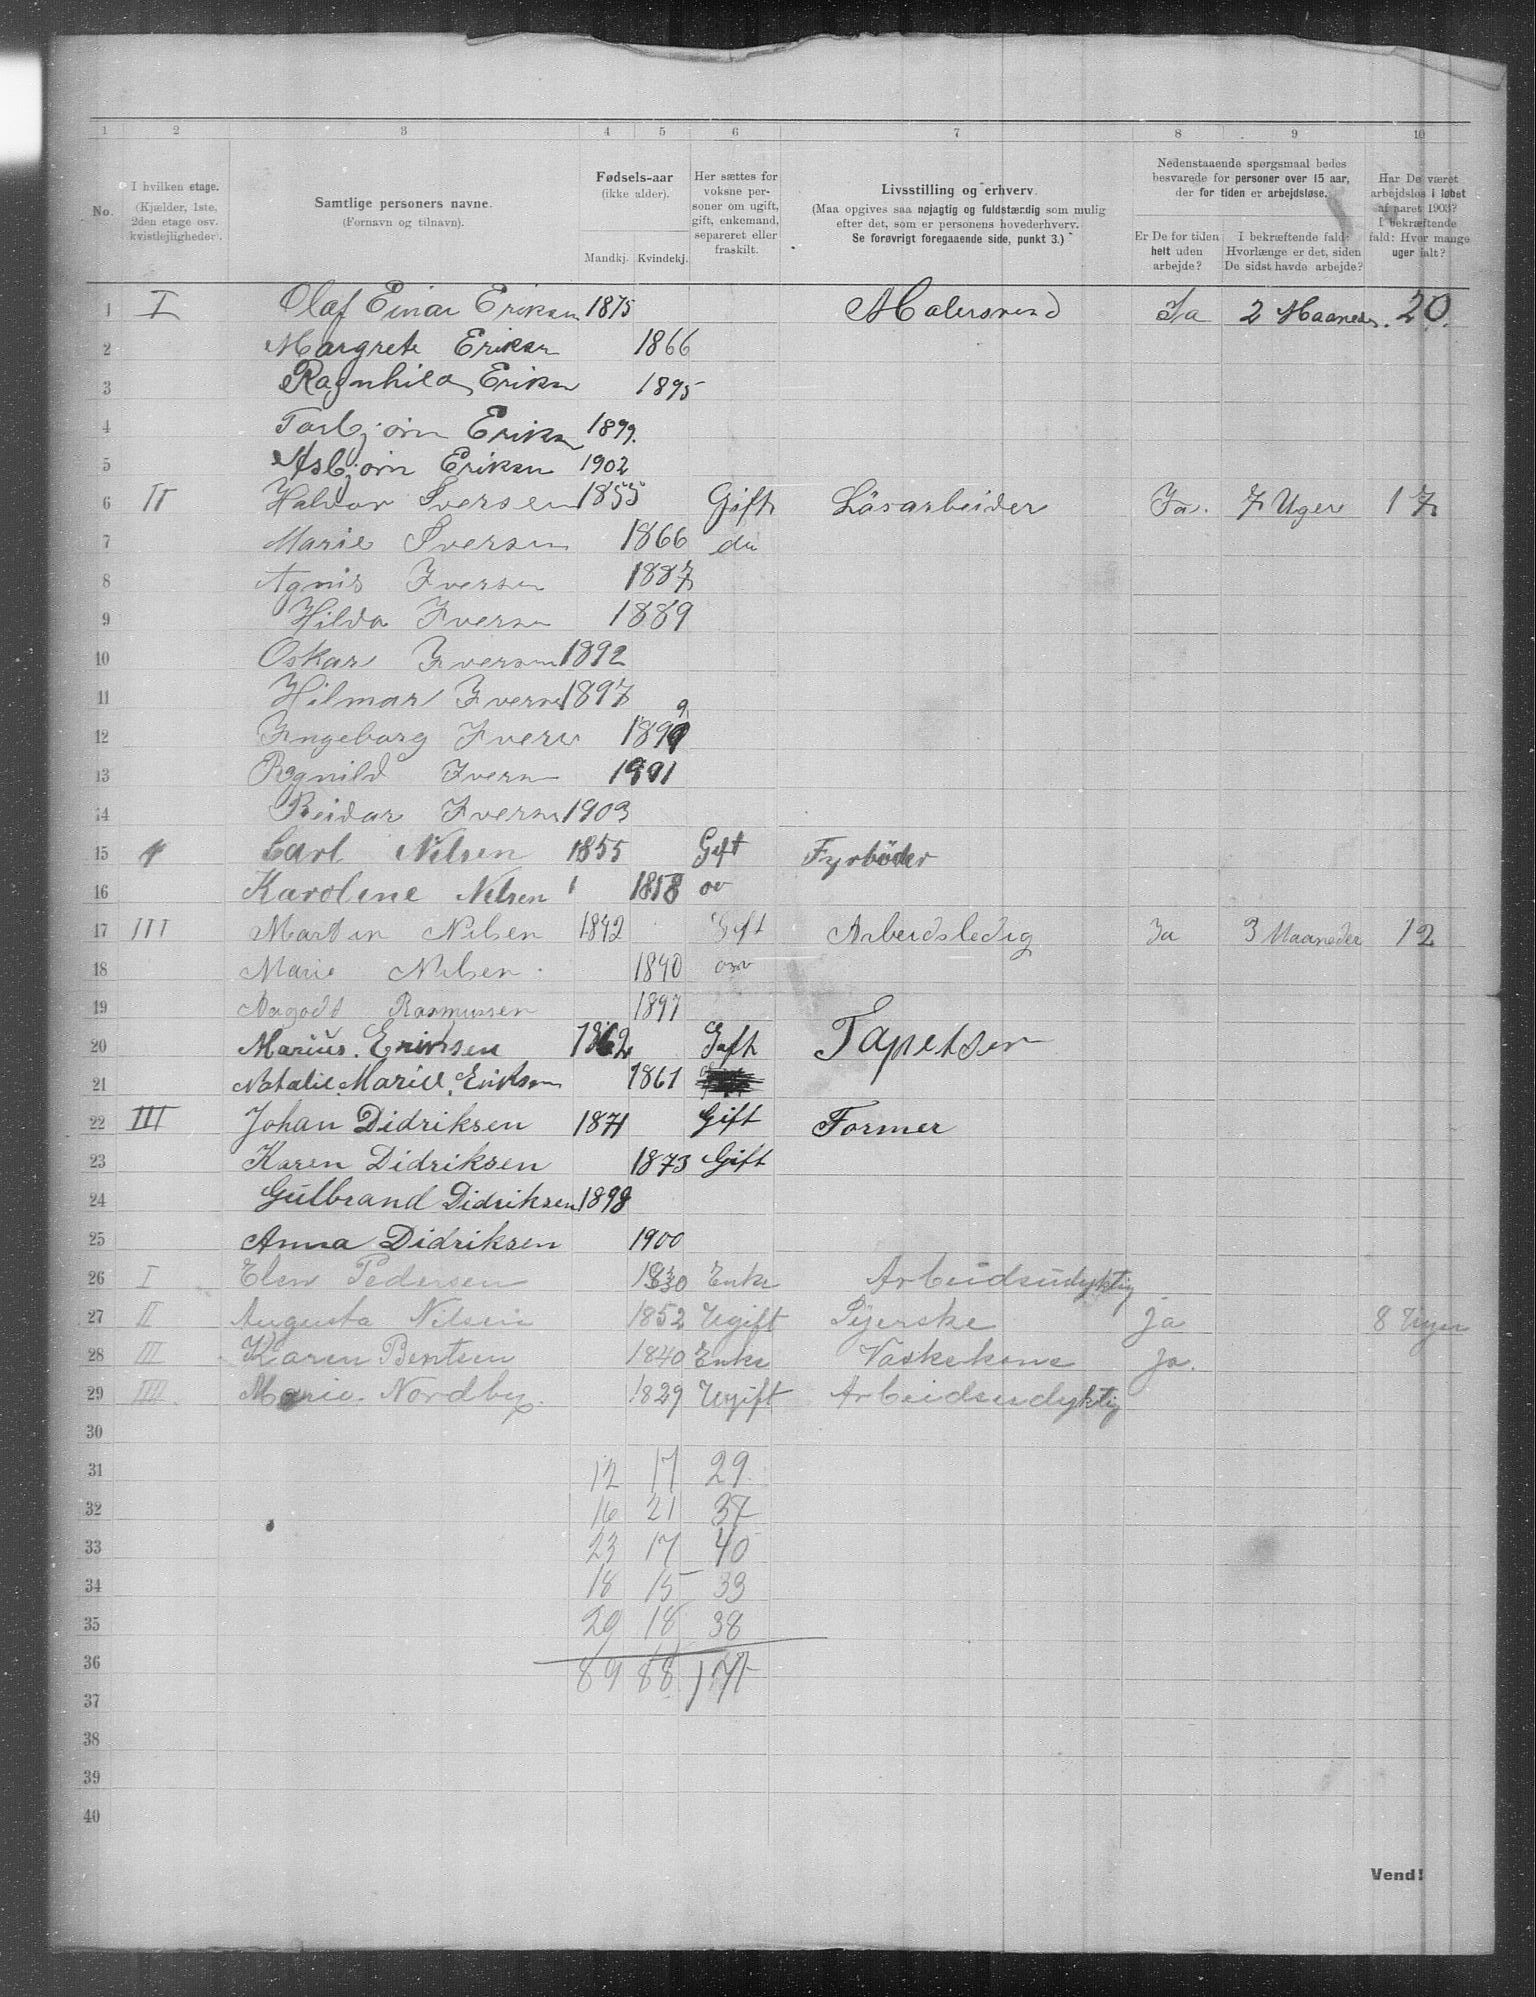 1 2 3 4 5 6 7 8 9 10
No.
I hvilken etage.
(Kjælder, 1ste,
2den etage osv.
kvistlejligheder).
Samtlige personers navne.
(Fornavn og tilnavn).
Fødsels-aar
(ikke alder).
Mandkj. Kvindekj.
Her sættes for
voksne per-
soner om ugift,
gift, enkemand,
separeret eller
fraskilt.
Livsstilling og erhverv.
(Maa opgives saa nøjagtig og fuldstændig som mulig
efter det, som er personens hovederhverv.
Se forøvrigt foregaaende side, punkt 3.)
Nedenstaaende spørgsmaal bedes
besvarede for personer over 15 aar,
der for tiden er arbejdsløse.
Er De for tiden
helt uden
arbejde?
I bekræftende fald:
Hvorlænge er det, siden
De sidst havde arbejde?
Har De været
arbejdsløs i løbet
af aaret 1903?
I bekræftende
fald: Hvor mange
uger ialt?
1 I Olaf Einar Eriksen 1875 Malersvend Ja 2 Maaneder. 20.
2 Margrete Eriksen 1866
3 Ragnhild Eriksn 1895
4 Torbjørn Eriksn 1899.
5 Asbjørn Eriksen 1902
6 II Halvor Iversen 1855 Gift Läsarbeider Ja. 7 Uger 17
7 Marie Iversen 1866 do
8 Agnis Iversen 1887
9 Hilda Iversn 1889
10 Oskar Iversen 1892
11 Hilmar Iversn 1897
12 Ingeborg Ivers 1899
13 Ragnild Iversn 1901
14 Reidar Iversn 1903
15 Carl Nilsen 1855 Gift Fyrböder
16 Karoline Nilsen 1858
17 III Martin Nilsen 1842 Gift Arbeidsledig Ja 3 Maaneder 12
18 Marie Nilsen 1840
19 Rasmussen 1897
20 Marius Eriksen 1862 Gift Tapetser
21 Natalie Marie Eriksen 1861
22 III Johan Didriksen 1871 Gift Former
23 Karen Didriksen 1873 Gift
24 Gulbrand Didriksen 1898
25 Anna Didriksen 1900
26 I Elen Pedersen 1830 Enke Arbeidsudyktig
27 II Augusta Nilsen 1852 Ugift Syerske Ja 8 Uger
28 III Karen Bentsen 1840 Enke Vaskekone Ja.
29 IIII Marie Nordby. 1829 Ugift Arbeidsudyktig
30
31 12 17 29
32 16 21 37
33 23 17 40
34 18 15 33
35 20 18 38
36 89 88 177
37
38
39
40
Vend!